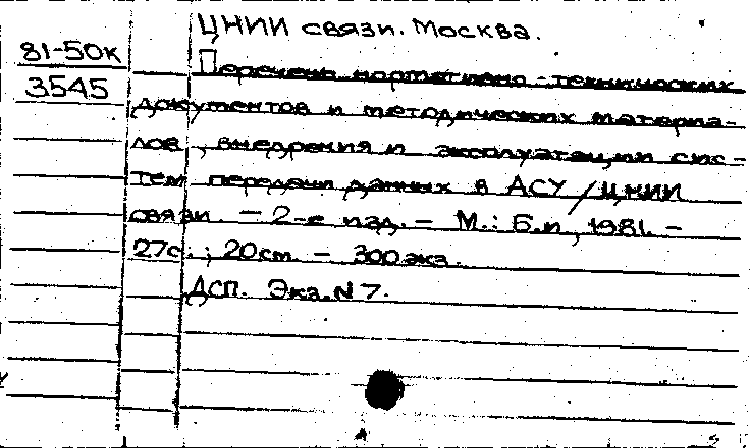 ЦНИИ связи. Москва.
81-50к
3545
Перечень нормативно-технических
документов и методических материа-
лов, внедрения и эксплуатации сис-
тем передачи данных в АСУ/ЦНИИ
связи. — 2-е изд. — М.: Б.и, 1981. —
27с.; 20см. — 300экз.
ДСП. Экз.N7.